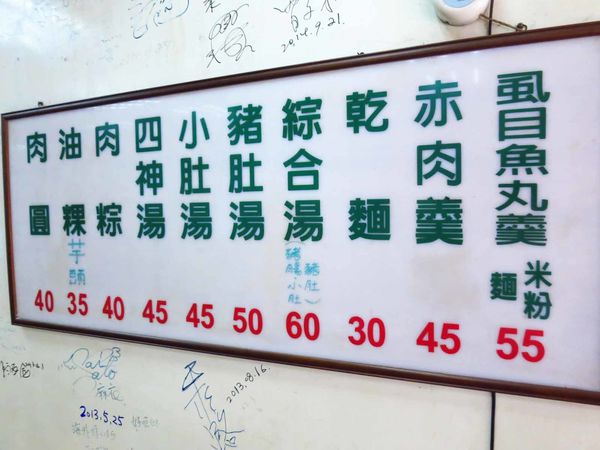 虱目魚丸羹 米粉 麵 55
赤肉羹 45
乾麵 30
綜合湯(豬腸小肚 豬肚) 60
豬肚湯 50
小肚湯 45
四神湯 45
肉粽 40
油粿 芋頭 35
肉圓 40
2014.9.21.
2013.08.16.
2013.5.25